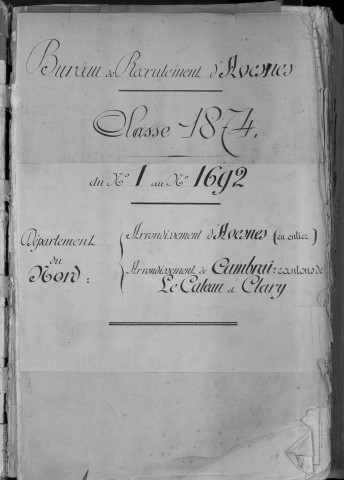 Bureau de Recrutement d'Avesnes
Classe 1874.
du N° 1 au N° 1692
Département
du
Nord:
Arrondissement d'Avesnes (en entier)
Arrondissement de Cambrai: cantons de
Le Cateau et Clary